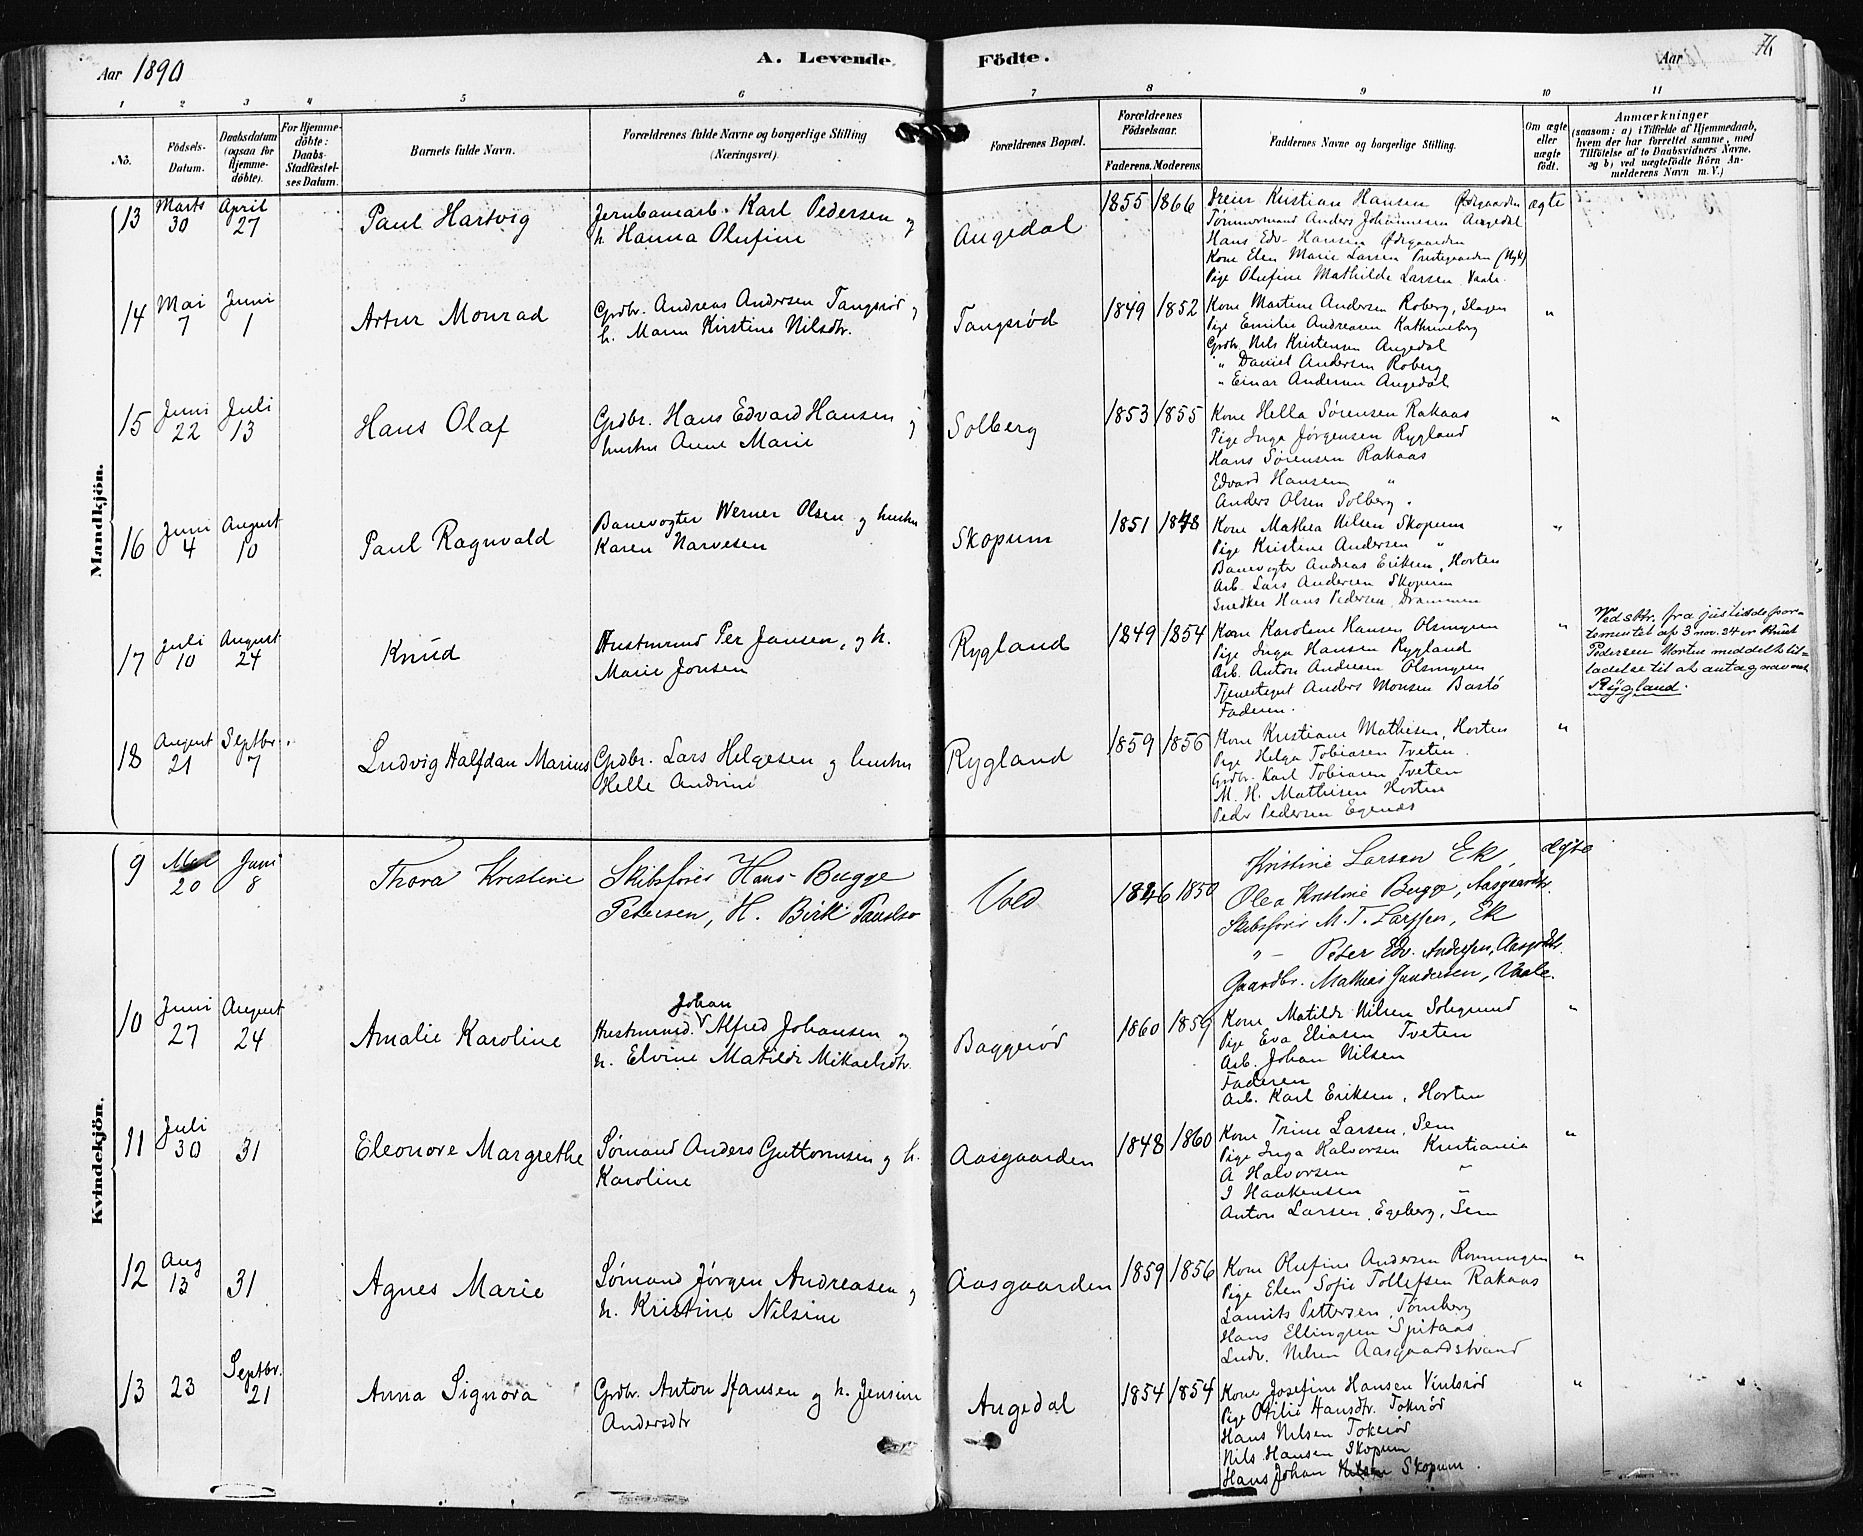 Aar 1890
A. Levende Födte.
Aar
76
1 2 3 4 5 6 7 8 9 10 11
No.
Födsels-Datum.
Daabsdatum (ogsaa for Hjemme-döbte).
For Hjemme-döbte: Daabs-Stadfæstel-ses Datum.
Barnets fulde Navn.
Forældrenes fulde Navne og borgerlige Stilling (Næringsvei).
Forældrenes Bopæl.
Forældrenes Födselsaar.
Faderens. Moderens.
Faddernes Navne og borgerlige Stilling.
Om ægte eller uægte födt.
Anmærkninger
(saasom: a) i Tilfælde af Hjemmedaab, hvem der har forrettet samme, med Tilföielse af to Daabsvidners Navne. og b) ved uægtefödte Börn An-melderens Navn m. V.)
Mandkjön.
13 Marts 30 April 27 Paul Hartvig
Jernbanearb. Karl Pedersen og
h. Hanna Olufine
Augedal 1855 1866
Dreier Kristian Hansen Ødegaarden ægte
Tømmermand Anders Johannesen Augedal
Hans Edv. Hansen Ødegaarden
Kone Elen Marie Larsen Prestegaarden (Nyk)
Pige Olufine Mathilde Larsen Vaale.
14 Mai 7 Juni 1 Artur Monrad
Grdbr. Andreas Andersen Tangsrød og
h. Maren Kirstine Nilsdtr.
Tangsrød 1849 1852
Kone Martine Andersen Roberg, Slagen "
Pige Emilie Andreasen Kathrineborg
Grdbr. Nils Kristensen Augedal
" Daniel Andersen Roberg
" Einar Andersen Augedal
15 Juni 22 Juli 13 Hans Olaf
Grdbr. Hans Edvard Hansen og
hustru Anne Marie
Solberg 1853 1855
Kone Hella Sørensen Rakaas "
Pige Inga Jørgensen Rygland
Hans Sørensen Rakaas
Edvard Hansen "
Anders Olsen Solberg.
16 Juni 4 August 10 Paul Ragnvald
Banevogter Werner Olsen og hustru
Karen Narvesen
Skopum 1851 1848
Kone Mathea Nilsen Skopum "
Pige Kristine Andersen "
Banevogter Andreas Eriksen, Horten
Arb. Lars Andersen Skopum
Snedker Hans Pedersen, Drammen
17 Juli 10 August 24 Knud
Hustmand Per Jansen, og h.
Marie Jonsen
Rygland 1849 1854
Kone Karoline Hansen Olsmyren "
Pige Inga Hansen Rygland
Arb. Anton Andersen Olsmyren
Tjenestegut Anders Monsen Bastø
Faderen.
Ved skr. fra justisdepar-
tementet af 3 nov. 24 er Knut
Pedersen Horten meddelt til-
ladelse til at antag navnet
Rygland.
18 August 21 Septbr. 7 Ludvig Halfdan Marius
Grdbr. Lars Helgesen og hustru
Helle Andrine
Rygland 1859 1856
Kone Kristiane Mathisen, Horten "
Pige Helga Tobiasen Tveten
Grdbr. Karl Tobiasen Tveten
M. H. Mathisen Horten
Peder Pedersen Egenæs
Kvindekjön.
9 Mai 20 Juni 8 Thora Kristine
Skibsfører Hans Bugge
Petersen, H. Birk
Vold 1846 1850
Kristine Larsen Ek, ægte
Olea Kristine Bugge, Aasgaardstr.
Skibsfører M. T. Larssen, Ek
" – Peter Edv. Anderssen, Aasgdstr.
Gaardbr. Mathias Gundersen, Vaale.
10 Juni 27 August 24 Amalie Karoline
Johan
Hustmand. Alfred Johansen og
h. Elvine Matilde Mikaelsdtr.
Baggerød 1860 1859
Kone Matilde Nilsen Solegrund "
Pige Eva Eliasen Tveten
Arb. Johan Nilsen
Faderen
Arb. Karl Eriksen, Horten
11 Juli 30 31 Eleonore Margrethe
Sømand Anders Guttormsen og h.
Karoline
Aasgaarden 1848 1860
Kone Trine Larsen, Sem "
Pige Inga Halvorsen Kristiania
A Halvorsen "
I Haakensen "
Anton Larsen, Egeberg, Sem
12 Aug 13 31 Agnes Marie
Sømand Jørgen Andreasen og
h. Kristine Nilsine
Aasgaarden 1859 1856
Kone Olufine Andersen Ronningen "
Pige Elen Sofie Tollefsen Rakaas
Laurits Pettersen, Tønsberg
Hans Ellingsen Spitaas
Ludv. Nilsen Aasgaardstrand
13 23 Septbr. 21 Anna Signora
Grdbr. Anton Hansen og h. Jensine
Andersdtr
Augedal 1854 1854
Kone Josefine Hansen Vinlsrød "
Pige Otilie Hansdtr. Tokerød
Hans Nilsen Tokerød
Nils Hansen Skopum
Hans Johan Nilsen Skopum.